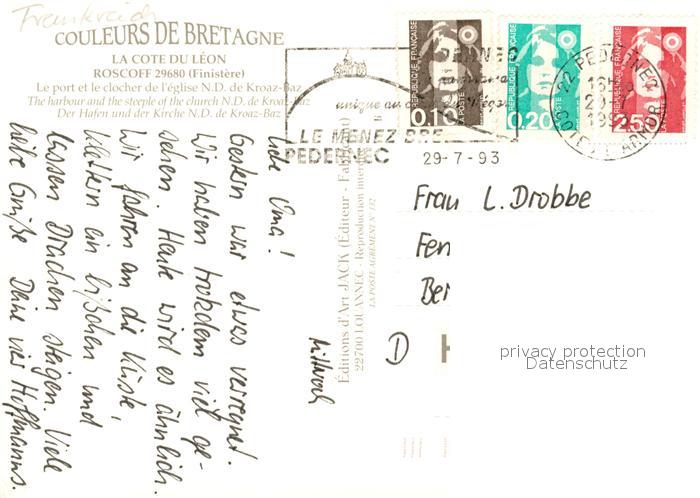 Frankreich
COULEURS DE BRETAGNE
LA COTE DU LÉON
ROSCOFF 29680 (Finistère)
Le port et le clocher de l'église N.D. de Kroaz-Baz
The harbour and the steeple of the church N.D. de Kroaz-Baz
Der Hafen und der Kirche N.D. de Kroaz-Baz
unique au
LE MENEZ BRE
PEDERNEC
29-7-93
RÉPUBLIQUE FRANÇAISE
LA POSTE
0,10
RÉPUBLIQUE FRANÇAISE
LA POSTE
0,20
RÉPUBLIQUE FRANÇAISE
LA POSTE
2,50
22 PEDERNEC
COTES D'ARMOR
Mittwoch
Liebe Oma!
Gestern war etwas verregnet.
Wir haben trotzdem viel ge-
sehen. Heute wird es ähnlich.
Wir fahren an die Küste,
klettern ein bißchen und
lassen Drachen steigen. Viele
liebe Grüße Deine vier Hoffmanns.
Éditions d'Art JACK (Éditeur - Fab
22700 LOUANNEC - Reproduction inter
LA POSTE AGRÉMENT N° 132
Frau L. Drobbe
Fen
Ber
D
privacy protection
Datenschutz